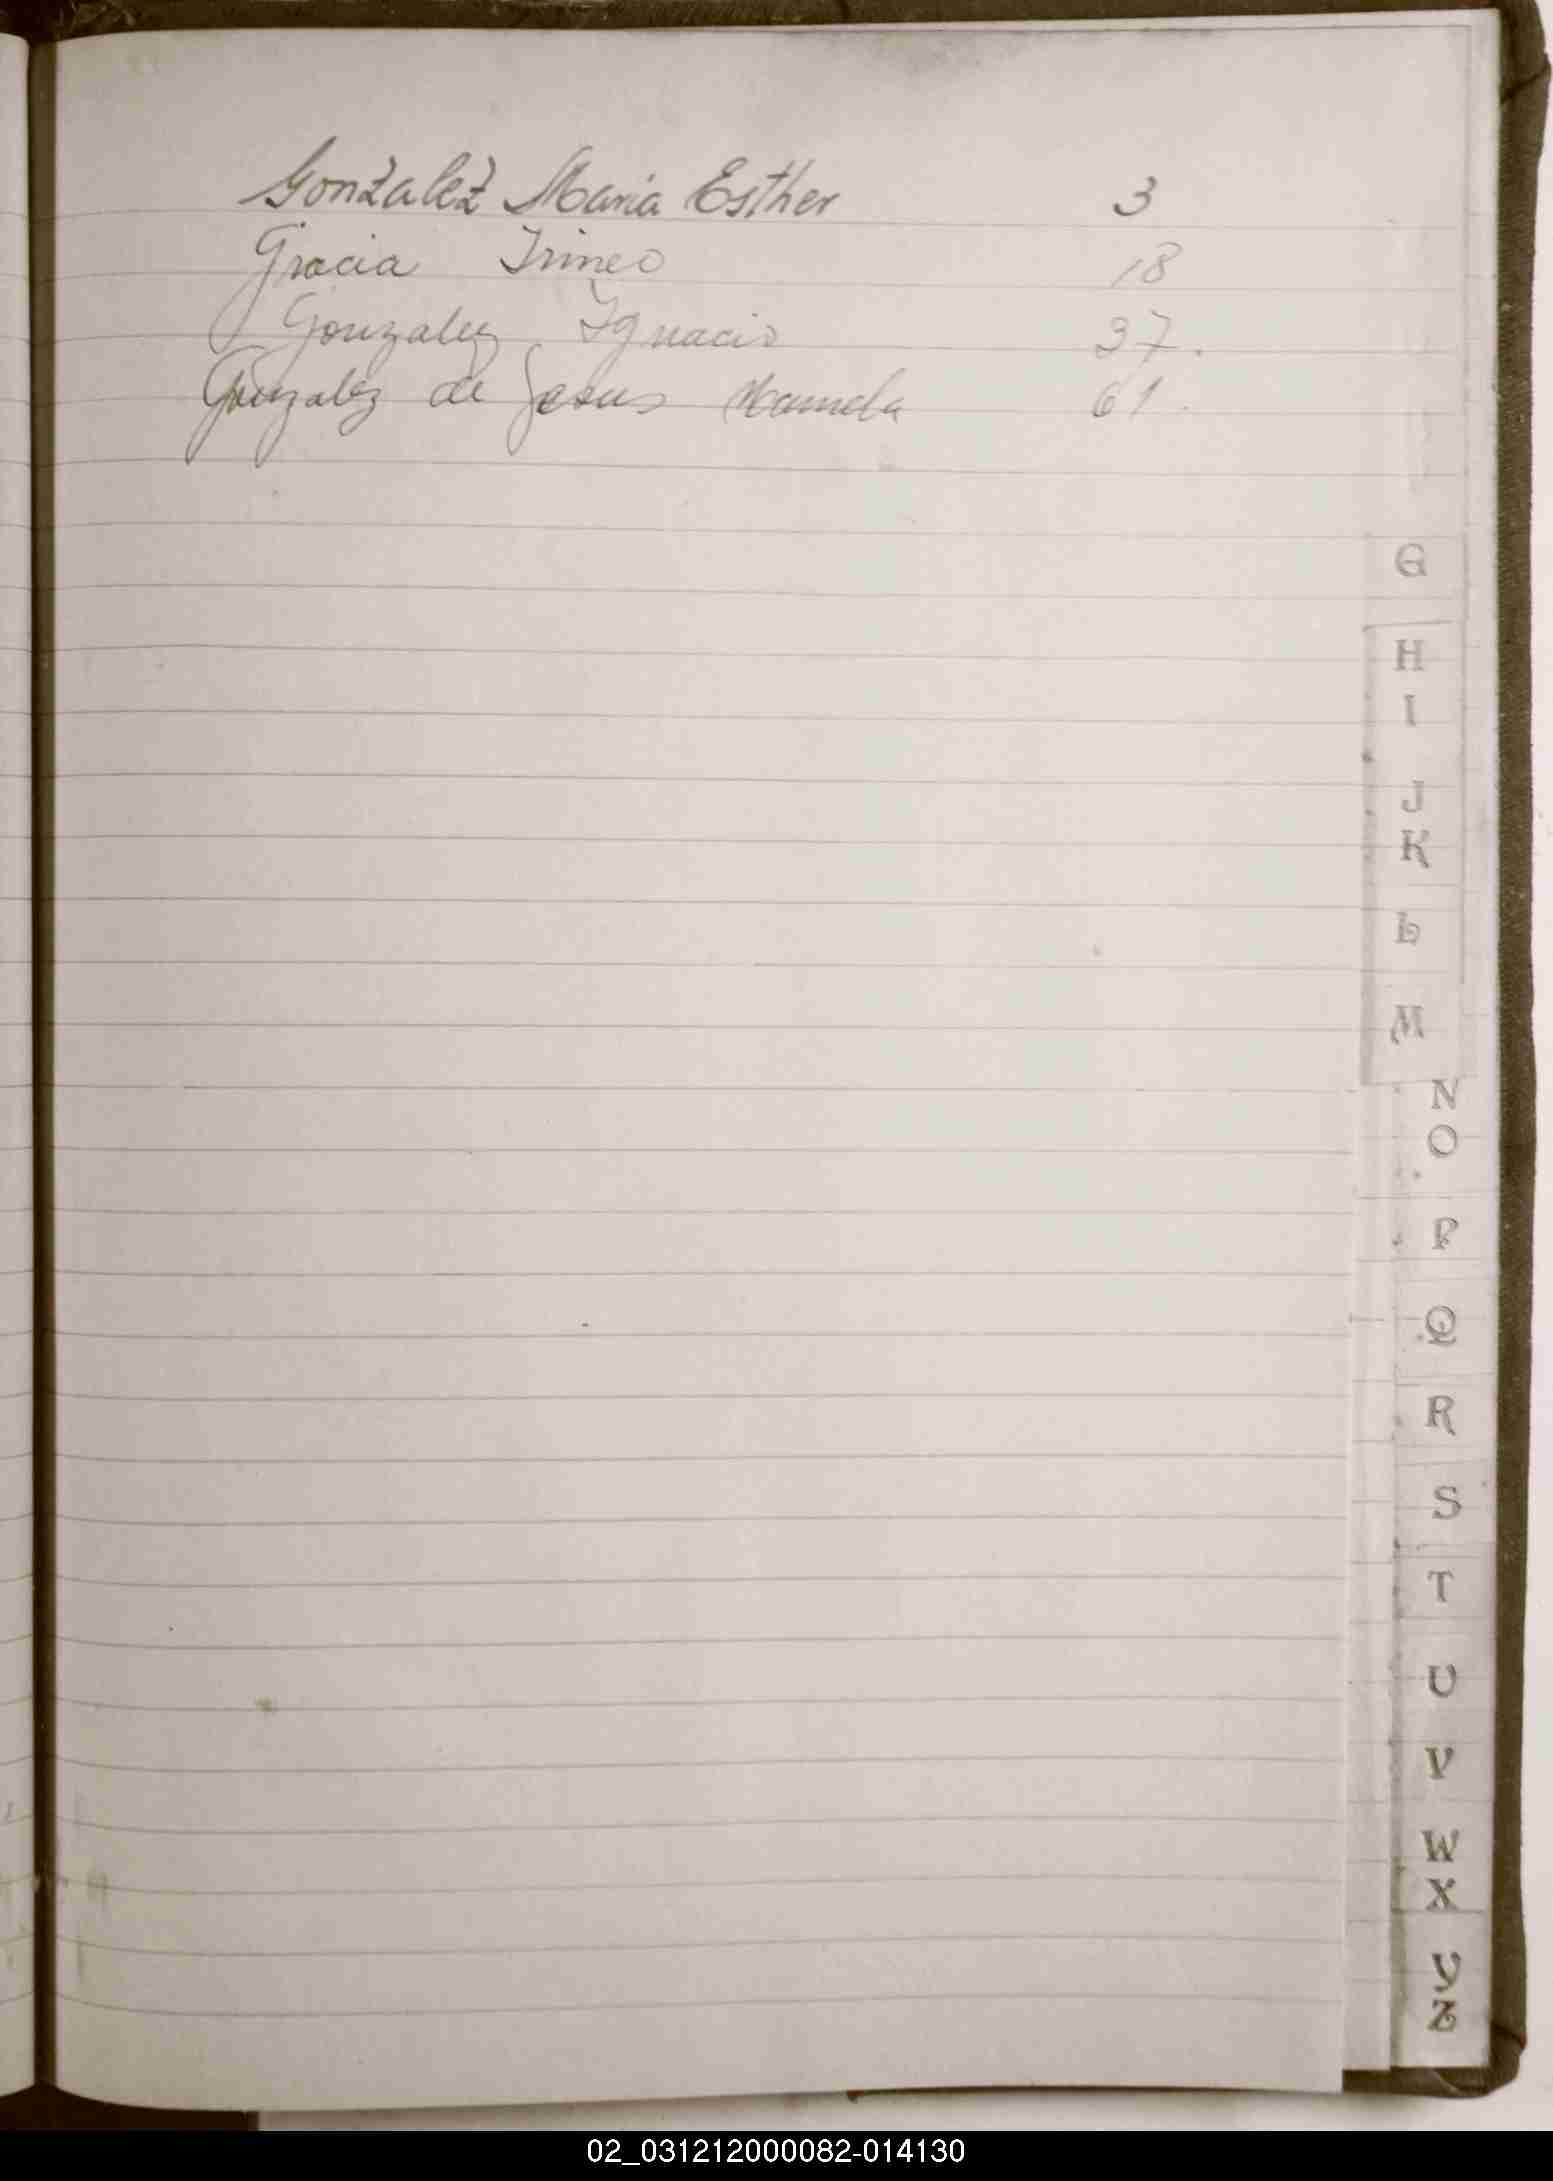 Gonzalez Maria Esther 3
Gracia Irineo 18
Gonzalez Ignacio 37.
Gonzalez de Jesus 61.
G
H
I
J
K
L
M
N
O
P
Q
R
S
T
U
V
W
X
Y
Z
02_031212000082-014130